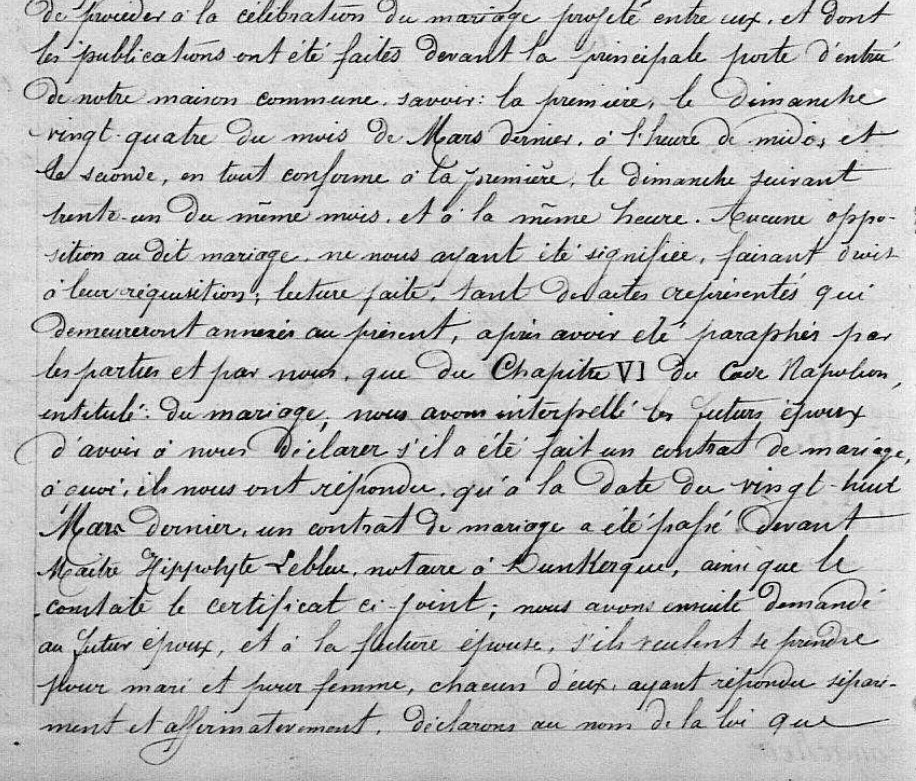 de procéder à la célébration du mariage projeté entre eux, et dont
les publications ont été faites devant la principale porte d'entrée
de notre maison commune, savoir: la première, le dimanche
vingt-quatre du mois de Mars dernier, à l'heure de midi, et
la seconde, en tout conforme à la première, le dimanche suivant
trente-un du même mois, et à la même heure. Aucune oppo-
sition au dit mariage, ne nous ayant été signifiée, faisant droit
à leur réquisition; lecture faite, tant des actes représentés qui
demeureront annexés au présent, après avoir été paraphés par
les parties et par nous, que du Chapitre VI du Code Napoléon,
intitulé: du mariage, nous avons interpellé les futurs époux
d'avoir à nous déclarer s'il a été fait un contrat de mariage,
à quoi, ils nous ont répondu, qu'à la date du vingt-huit
Mars dernier, un contrat de mariage a été passé devant
Maitre Hippolyte Lebleu, notaire à Dunkerque, ainsi que le
constate le certificat ci-joint; nous avons ensuite demandé
au futur époux, et à la future épouse, s'ils veulent se prendre
pour mari et pour femme, chacun d'eux, ayant répondu séparé-
ment et affirmativement, déclarons au nom de la loi que